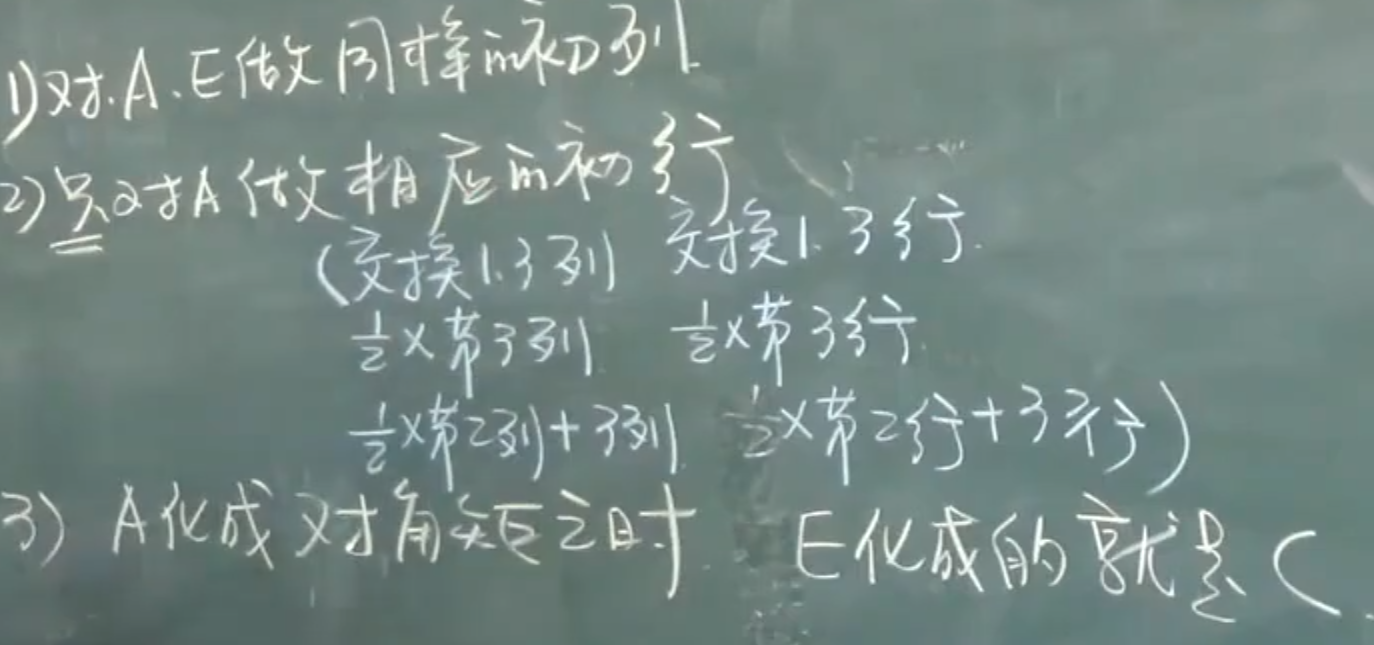 1)对A、E做同样的初列
2)只对A做相应的初行
(交换1.3列 交换1.3行.
1/2×第3列 1/2×第3行.
1/2×第2列+3列 1/2×第2行+3行)
3) A化成对角矩之时 E化成的就是C.